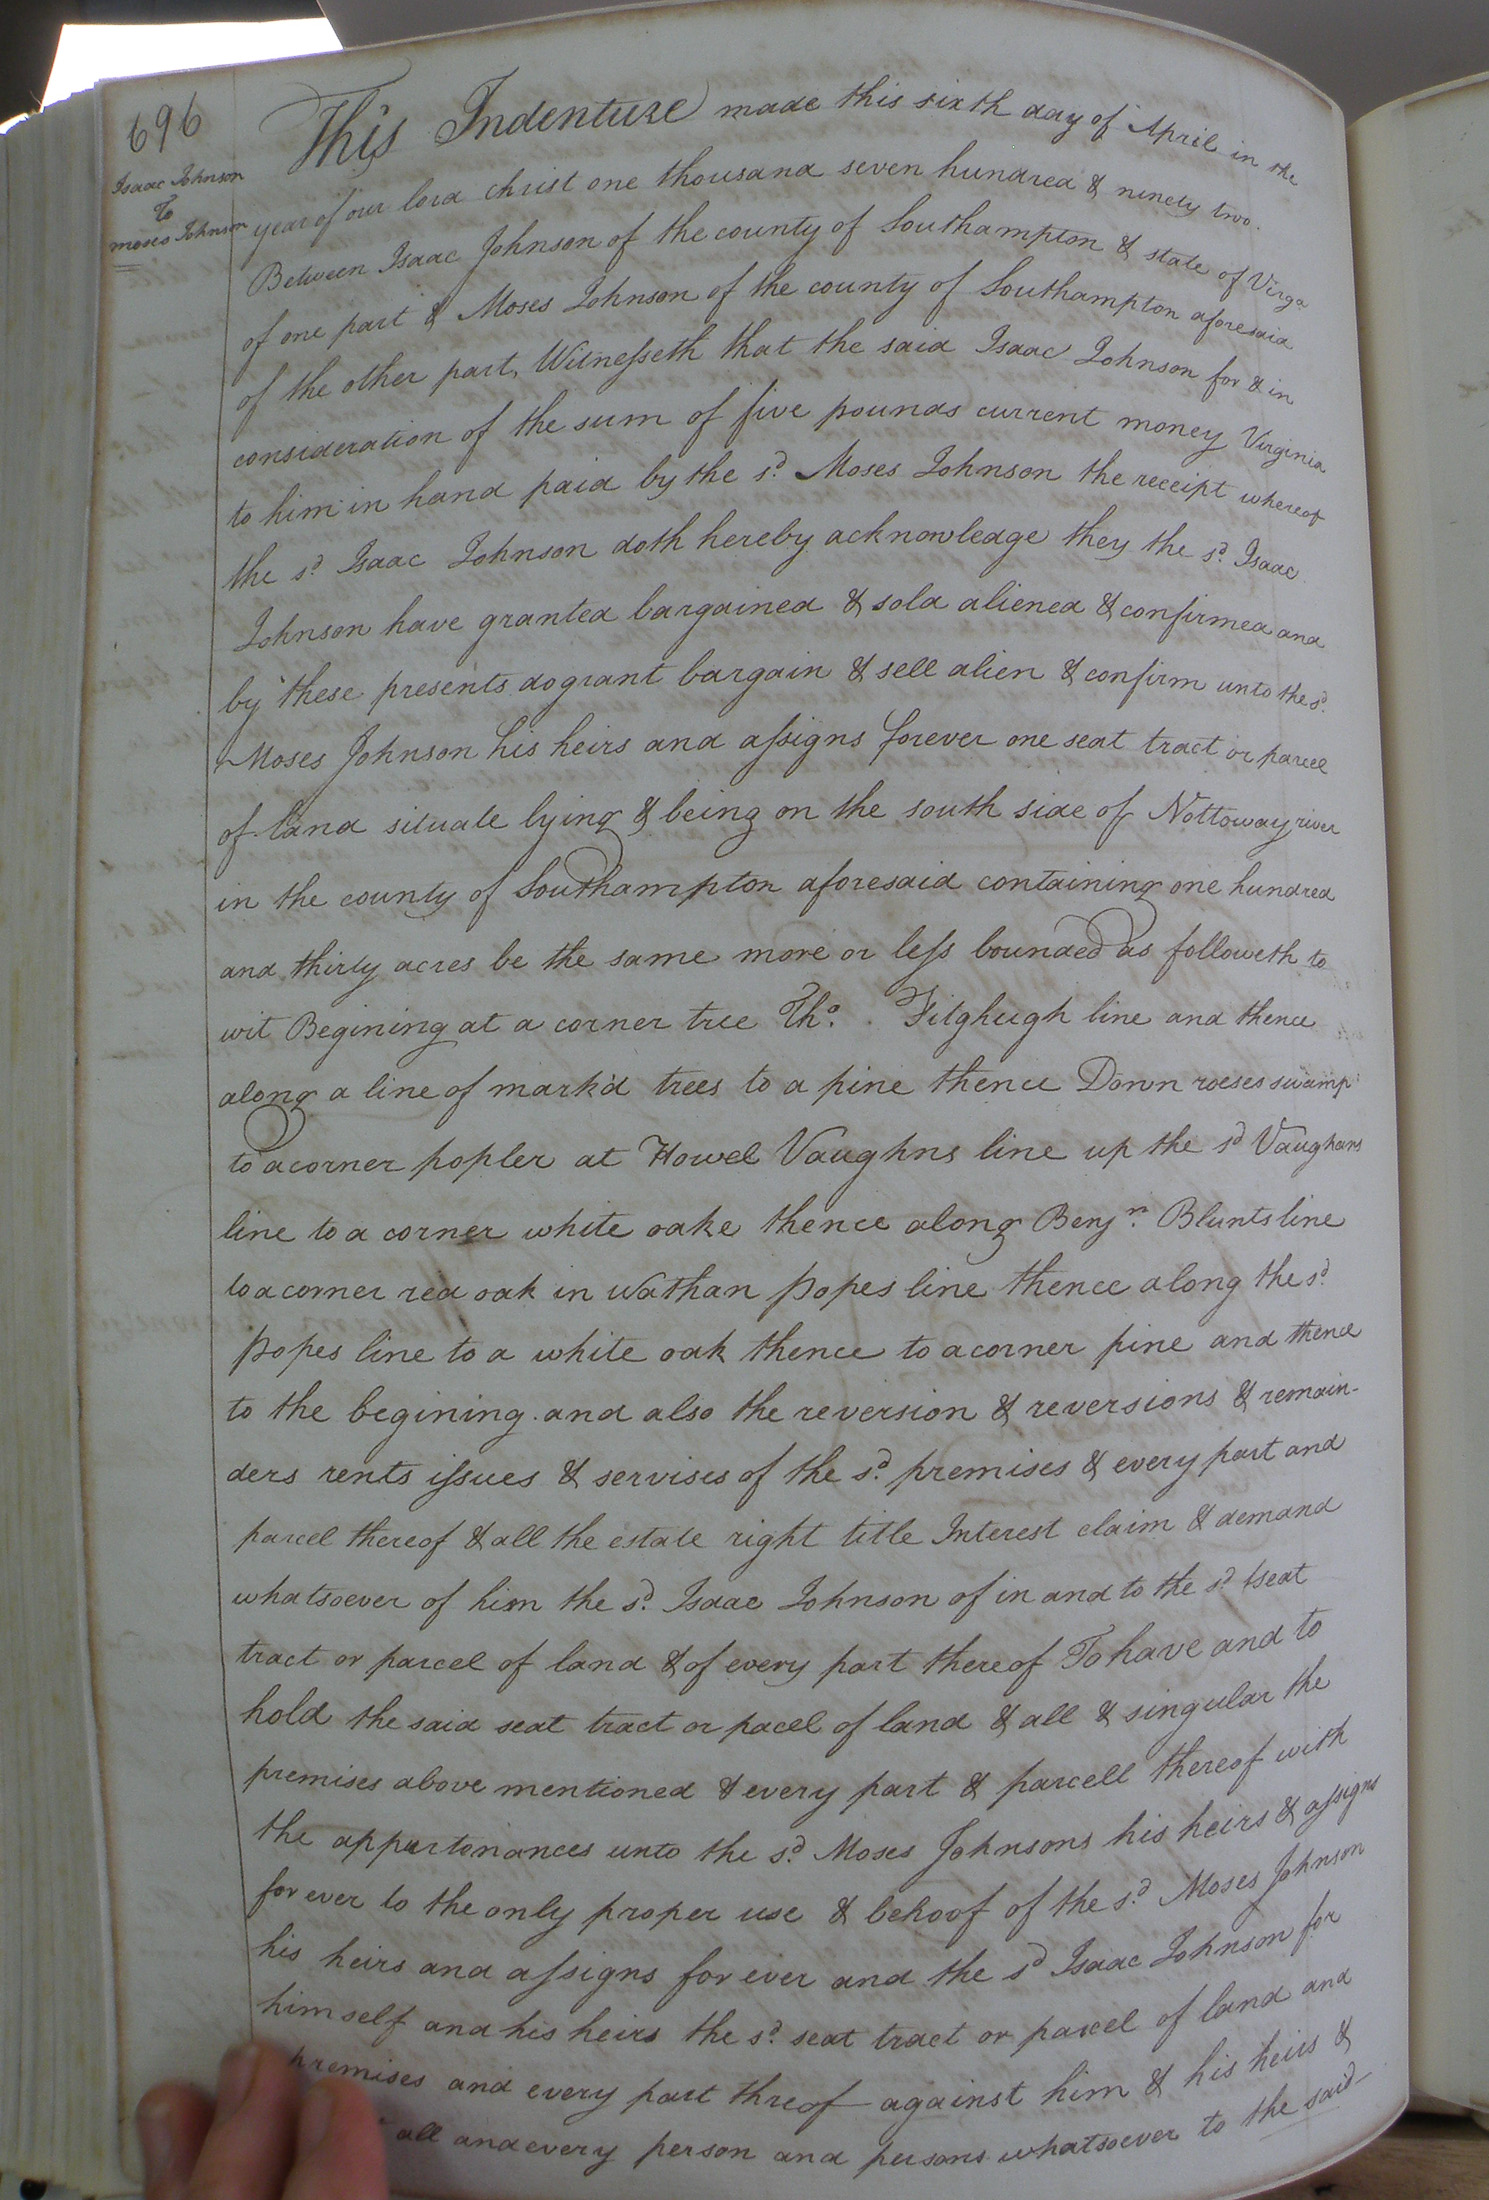 696
Isaac Johnson
To
Moses Johnson
This Indenture made this sixth day of April in the
year of our lord christ one thousand seven hundred & ninety two.
Between Isaac Johnson of the county of Southampton & state of Virga
of one part & Moses Johnson of the county of Southampton aforesaid
of the other part, Witnesseth that the said Isaac Johnson for & in
consideration of the sum of five pounds current money Virginia
to him in hand paid by the sd. Moses Johnson the receipt whereof
the sd. Isaac Johnson doth hereby acknowledge they the sd. Isaac
Johnson have granted bargained & sold aliened & confirmed and
by these presents do grant bargain & sell alien & confirm unto the sd.
Moses Johnson his heirs and assigns forever one seat tract or parcel
of land situate lying & being on the south side of Nottoway river
in the county of Southampton aforesaid containing one hundred
and thirty acres be the same more or less bounded as followeth to
wit Begining at a corner tree Tho. Fitghugh line and thence
along a line of mark'd trees to a pine thence Down roeses swamp
to a corner popler at Howel Vaughns line up the sd Vaughans
line to a corner white oake thence along Benjn. Blunts line
to a corner red oak in Nathan popes line thence along the sd.
popes line to a white oak thence to a corner pine and thence
to the begining. and also the reversion & reversions & remain-
ders rents issues & servises of the sd. premises & every part and
parcel thereof & all the estate right title Interest claim & demand
whatsoever of him the sd. Isaac Johnson of in and to the sd. seat
tract or parcel of land & of every part thereof To have and to
hold the said seat tract or pacel of land & all & singular the
premises above mentioned & every part & parcell thereof with
the appurtonances unto the sd. Moses Johnsons his heirs & assigns
for ever to the only proper use & behoof of the sd. Moses Johnson
his heirs and assigns for ever and the sd Isaac Johnson for
himself and his heirs the sd. seat tract or parcel of land and
premises and every part threof against him & his heirs &
all and every person and persons whatsoever to the said